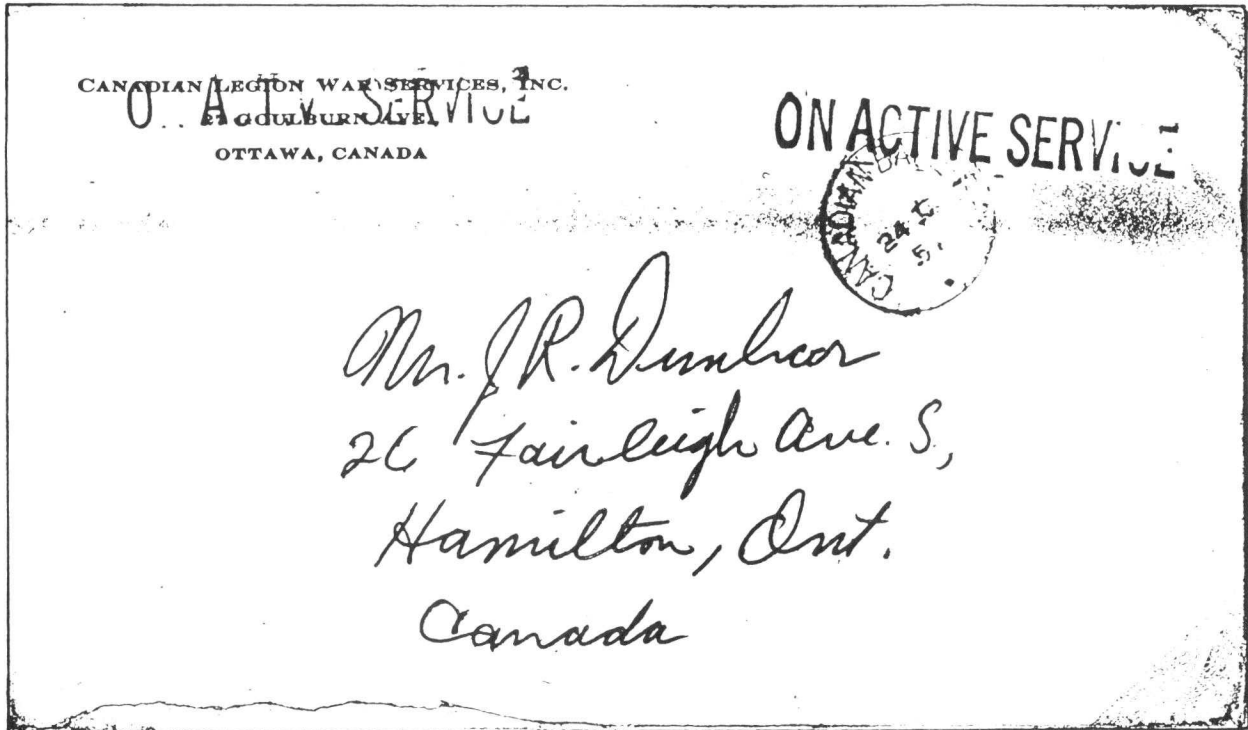 CANADIAN LEGION WAR SERVICES, INC.
GOULBURN AVE.
OTTAWA, CANADA
ON ACTIVE SERVICE
CANADIAN
24
Mr. J. R. Dunbar
26 Fairleigh Ave. S,
Hamilton, Ont.
Canada